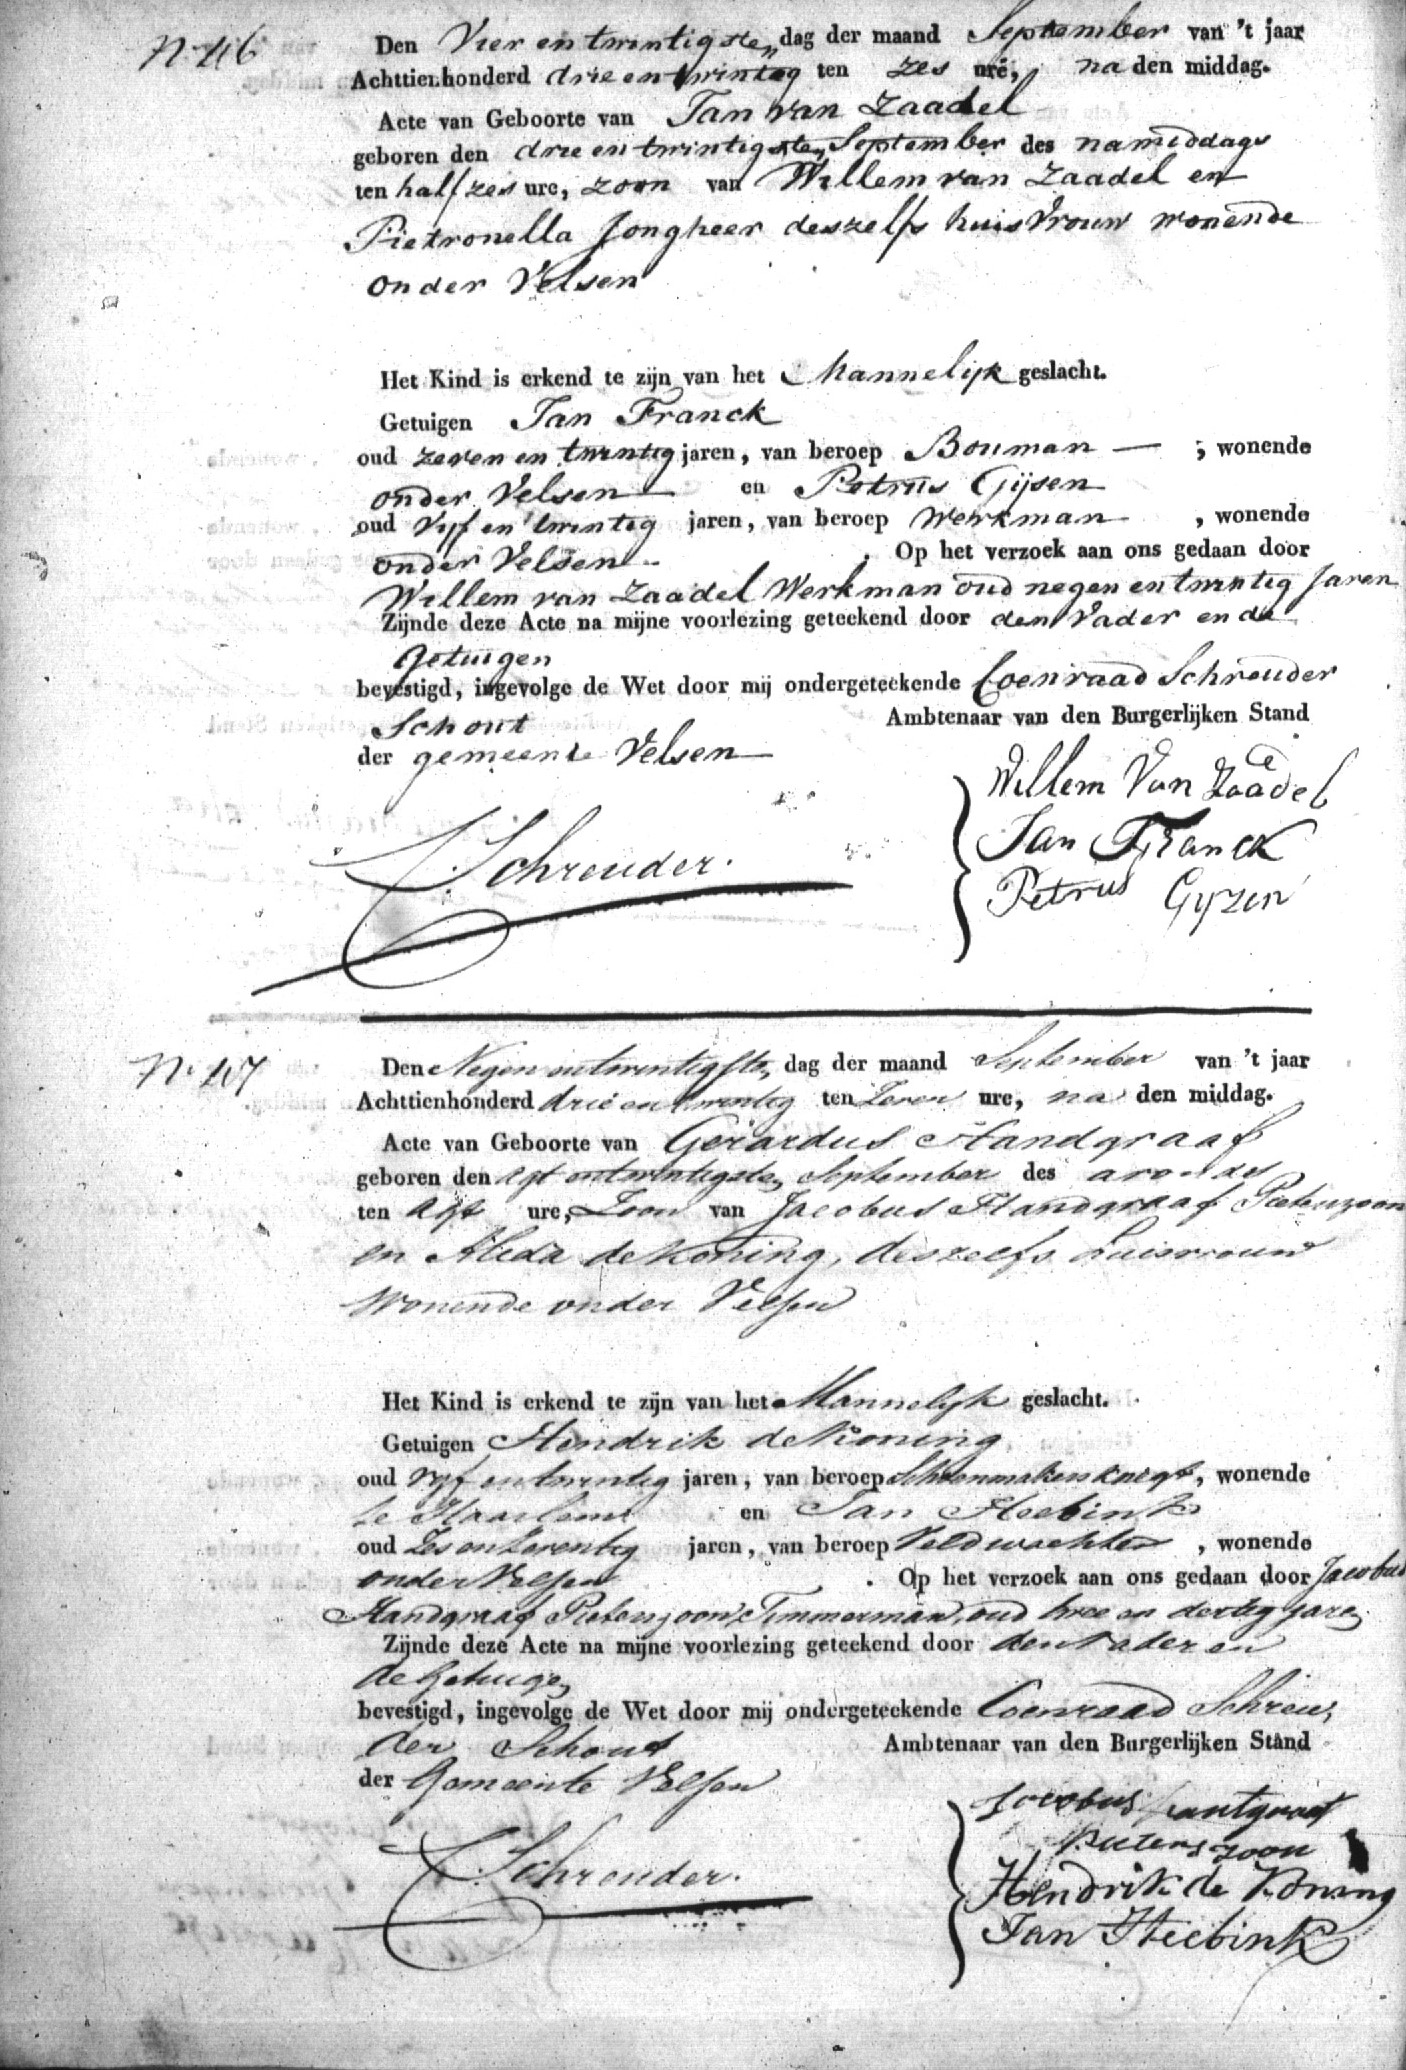 N. 46
Den Vier en twintigsten dag der maand September van 't jaar
Achttienhonderd drie en twintig ten zes ure, na den middag.
Acte van Geboorte van Jan van Zaadel
geboren den drie en twintigsten September des namiddags
ten half zes ure, zoon van Willem van Zaadel en
Pietronella Jongheer deszelfs huisVrouw wonende
onder Velsen
Het Kind is erkend te zijn van het Mannelijk geslacht.
Getuigen Jan Franck
oud zeven en twintig jaren, van beroep Bouman ; wonende
onder Velsen en Petrus Gijsen
oud vijf en twintig jaren, van beroep Werkman , wonende
onder Velsen . Op het verzoek aan ons gedaan door
Willem van Zaadel Werkman oud negen en twintig Jaren
Zijnde deze Acte na mijne voorlezing geteekend door den Vader en de
getuigen
bevestigd, ingevolge de Wet door mij ondergeteekende Coenraad Schreuder
Schout Ambtenaar van den Burgerlijken Stand
der gemeente Velsen
Willem Van Zaadel
Jan Franck
Petrus Gyzen
CSchreuder.
N. 47
Den Negen entwintigste, dag der maand September van 't jaar
Achttienhonderd drie en twintig ten Zeven ure, na den middag.
Acte van Geboorte van Gerardus Handgraaf
geboren den Agt entwintigste, September des avondes
ten Agt ure, Zoon van Jacobus Handgraaf Pieterszoon
en Alida de Koning, deszelfs huisvrouw
Wonende onder Velsen
Het Kind is erkend te zijn van het Mannelijk geslacht.
Getuigen Hendrik de Koning
oud vyf en twintig jaren, van beroep Schoenmakersknegt, wonende
te Haarlem en Jan Heebink
oud Zes en Zeventig jaren, van beroep Veldwachter , wonende
onder Velsen . Op het verzoek aan ons gedaan door Jacobus
Handgraaf Pieterszoon, Timmerman, oud twee en dertig jare,
Zijnde deze Acte na mijne voorlezing geteekend door den Vader en
de getuige,
bevestigd, ingevolge de Wet door mij ondergeteekende Coenraad Schreu,
der Schout Ambtenaar van den Burgerlijken Stand
der Gemeente Velsen
Jacobus hantgraaf
pieters zoon
Hendrik de Koning
Jan Heebink
CSchreuder.